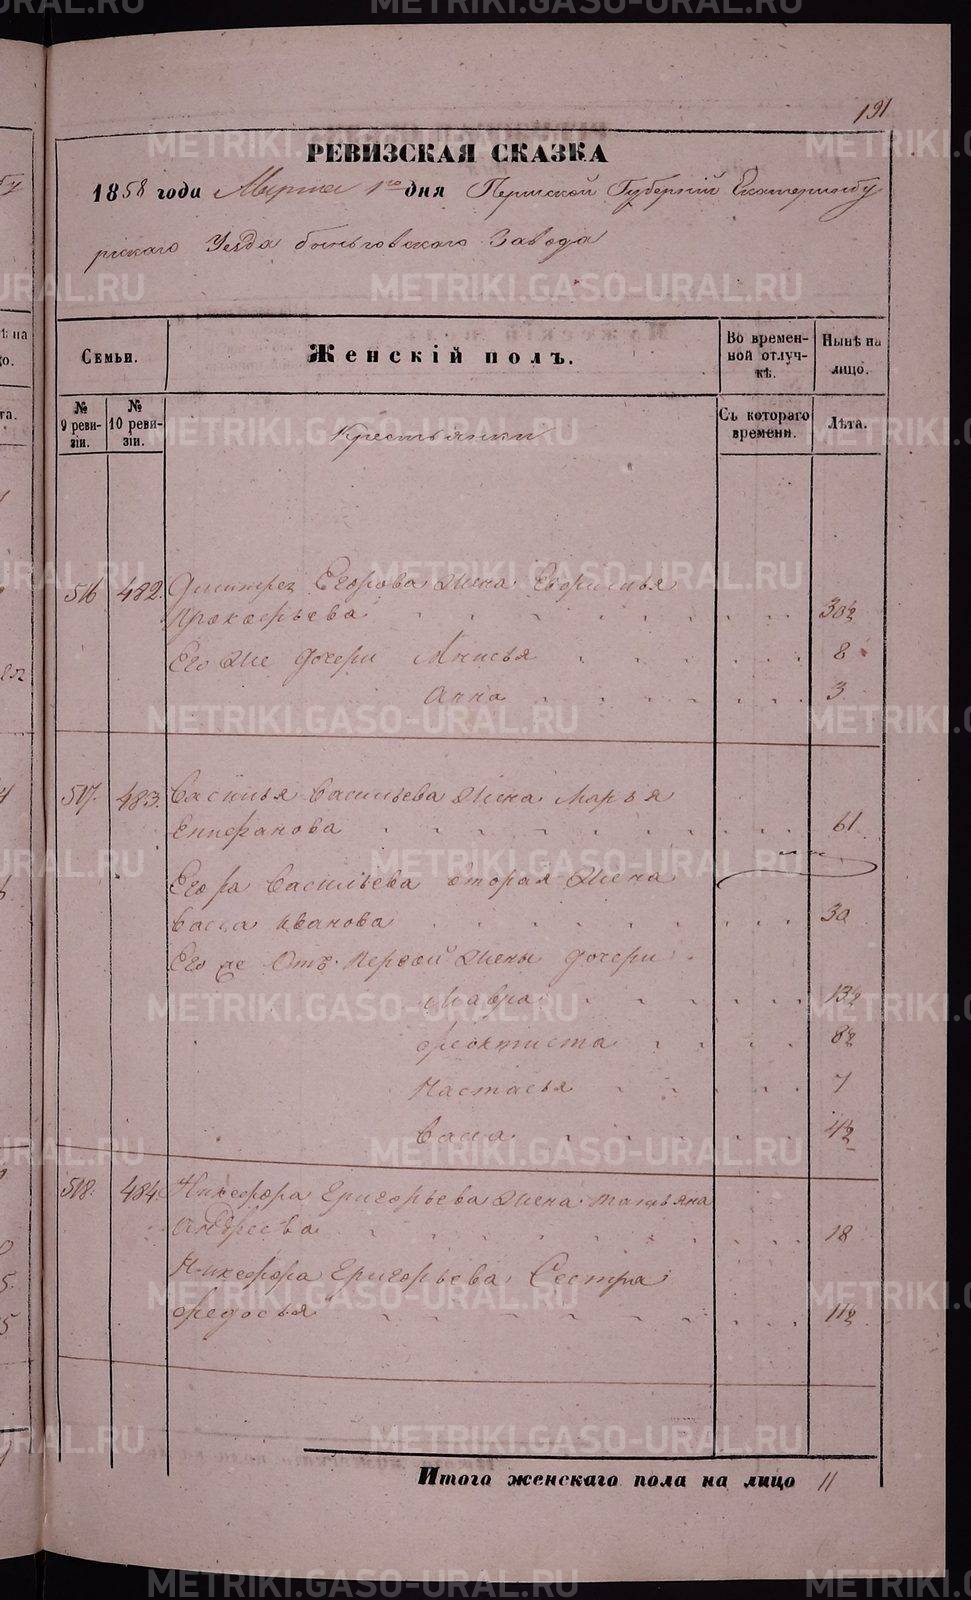 191
РЕВИЗСКАЯ СКАЗКА
1858 года Марта 1го дня Пермской Губерній Екатеринбу
ргскаго Уезда быньговскаго Завода
Семьи.
Женскій полъ.
Во времен-
ной отлуч-
кѣ.
Нынѣ на
лицо.
№
9 реви-
зіи.
№
10 реви-
зіи.
Крестьянки
Съ котораго
времени.
Лѣта.
516 482. Дмитрея Егорова Жена Ефросинья
Прокофьева 30½
Его Же дочери Анисья 8
Анна 3
517. 483. Василья Васильева Жена Марья
Епифанова 61
Егора Васильева вторая Жена
Васса Иванова 30
Его же Отъ Первой Жены дочери
Мавра 13½
Феоктиста 8½
Настасья 7
Васса 4½
518. 484. Никефора Григорьева Жена татьяна
Андреева 18
Никефора Григорьева Сестра
Федосья 11½
Итого женскаго пола на лицо 11
METRIKI.GASO-URAL.RU